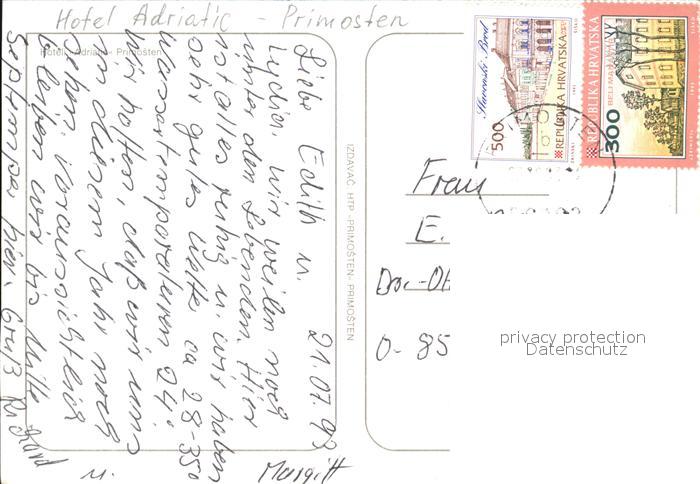 Hotel Adriatic - Primosten
Hotel „Adriatic“ Primošten
21.07.93
Liebe Edith u.
Lydia, wir weilen noch
unter den Lebenden. Hier
ist alles ruhig u. wir haben
sehr gutes Wetter ca 28-35°
Wassertemperaturen 24°.
Wir hoffen, daß wir uns
in diesem Jahr noch
sehen. Voraussichtlich
bleiben wir bis Mitte
September hier. Gruß Richard
u. Margitt
IZDAVAČ HTP -PRIMOŠTEN- PRIMOŠTEN
Slavonski Brod
500
REPUBLIKA HRVATSKA
REPUBLIKA HRVATSKA
300
Frau
E.
O- 85
privacy protection
Datenschutz